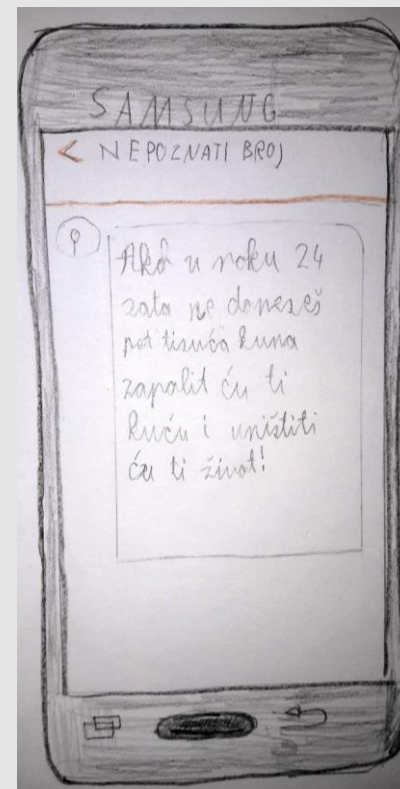 SAMSUNG
< NEPOZNATI BROJ
Ako u roku 24
sata ne doneseš
pet tisuća kuna
zapalit ću ti
kuću i uništiti
ću ti život!